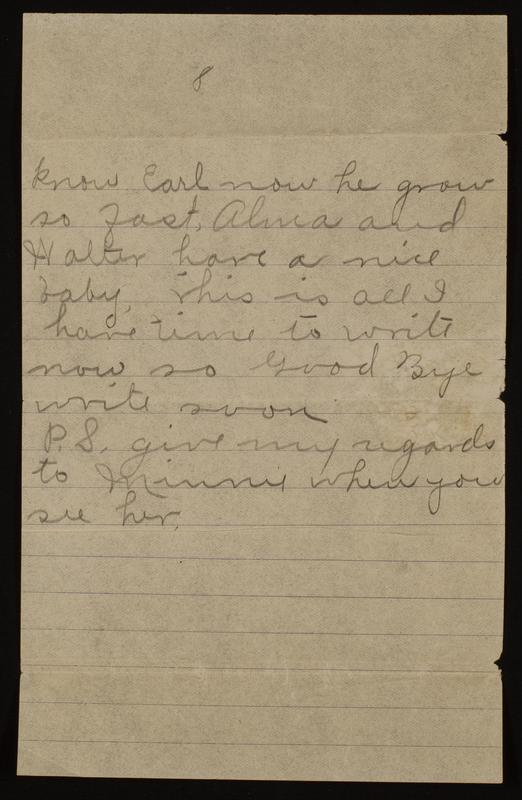 8
know Earl now he grow
so fast, Alma and
Walter have a nice
baby, this is all I
have time to write
now so Good Bye
write soon
P.S. give my regards
to Minnie when you
see her.